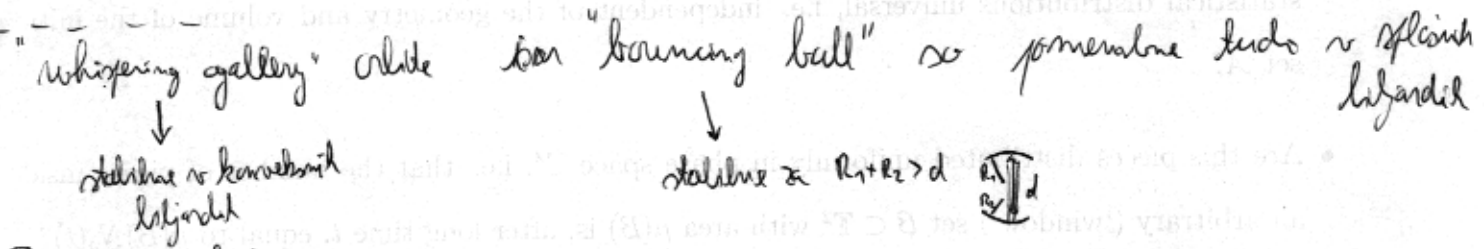 "whispering gallery" orbite in "bouncing ball" so pomembne tudo v splošnih
biljardih
↓ ↓
stabilne v konveksnih stabilne za R₁+R₂ > d R₁ R₂ d
biljardih